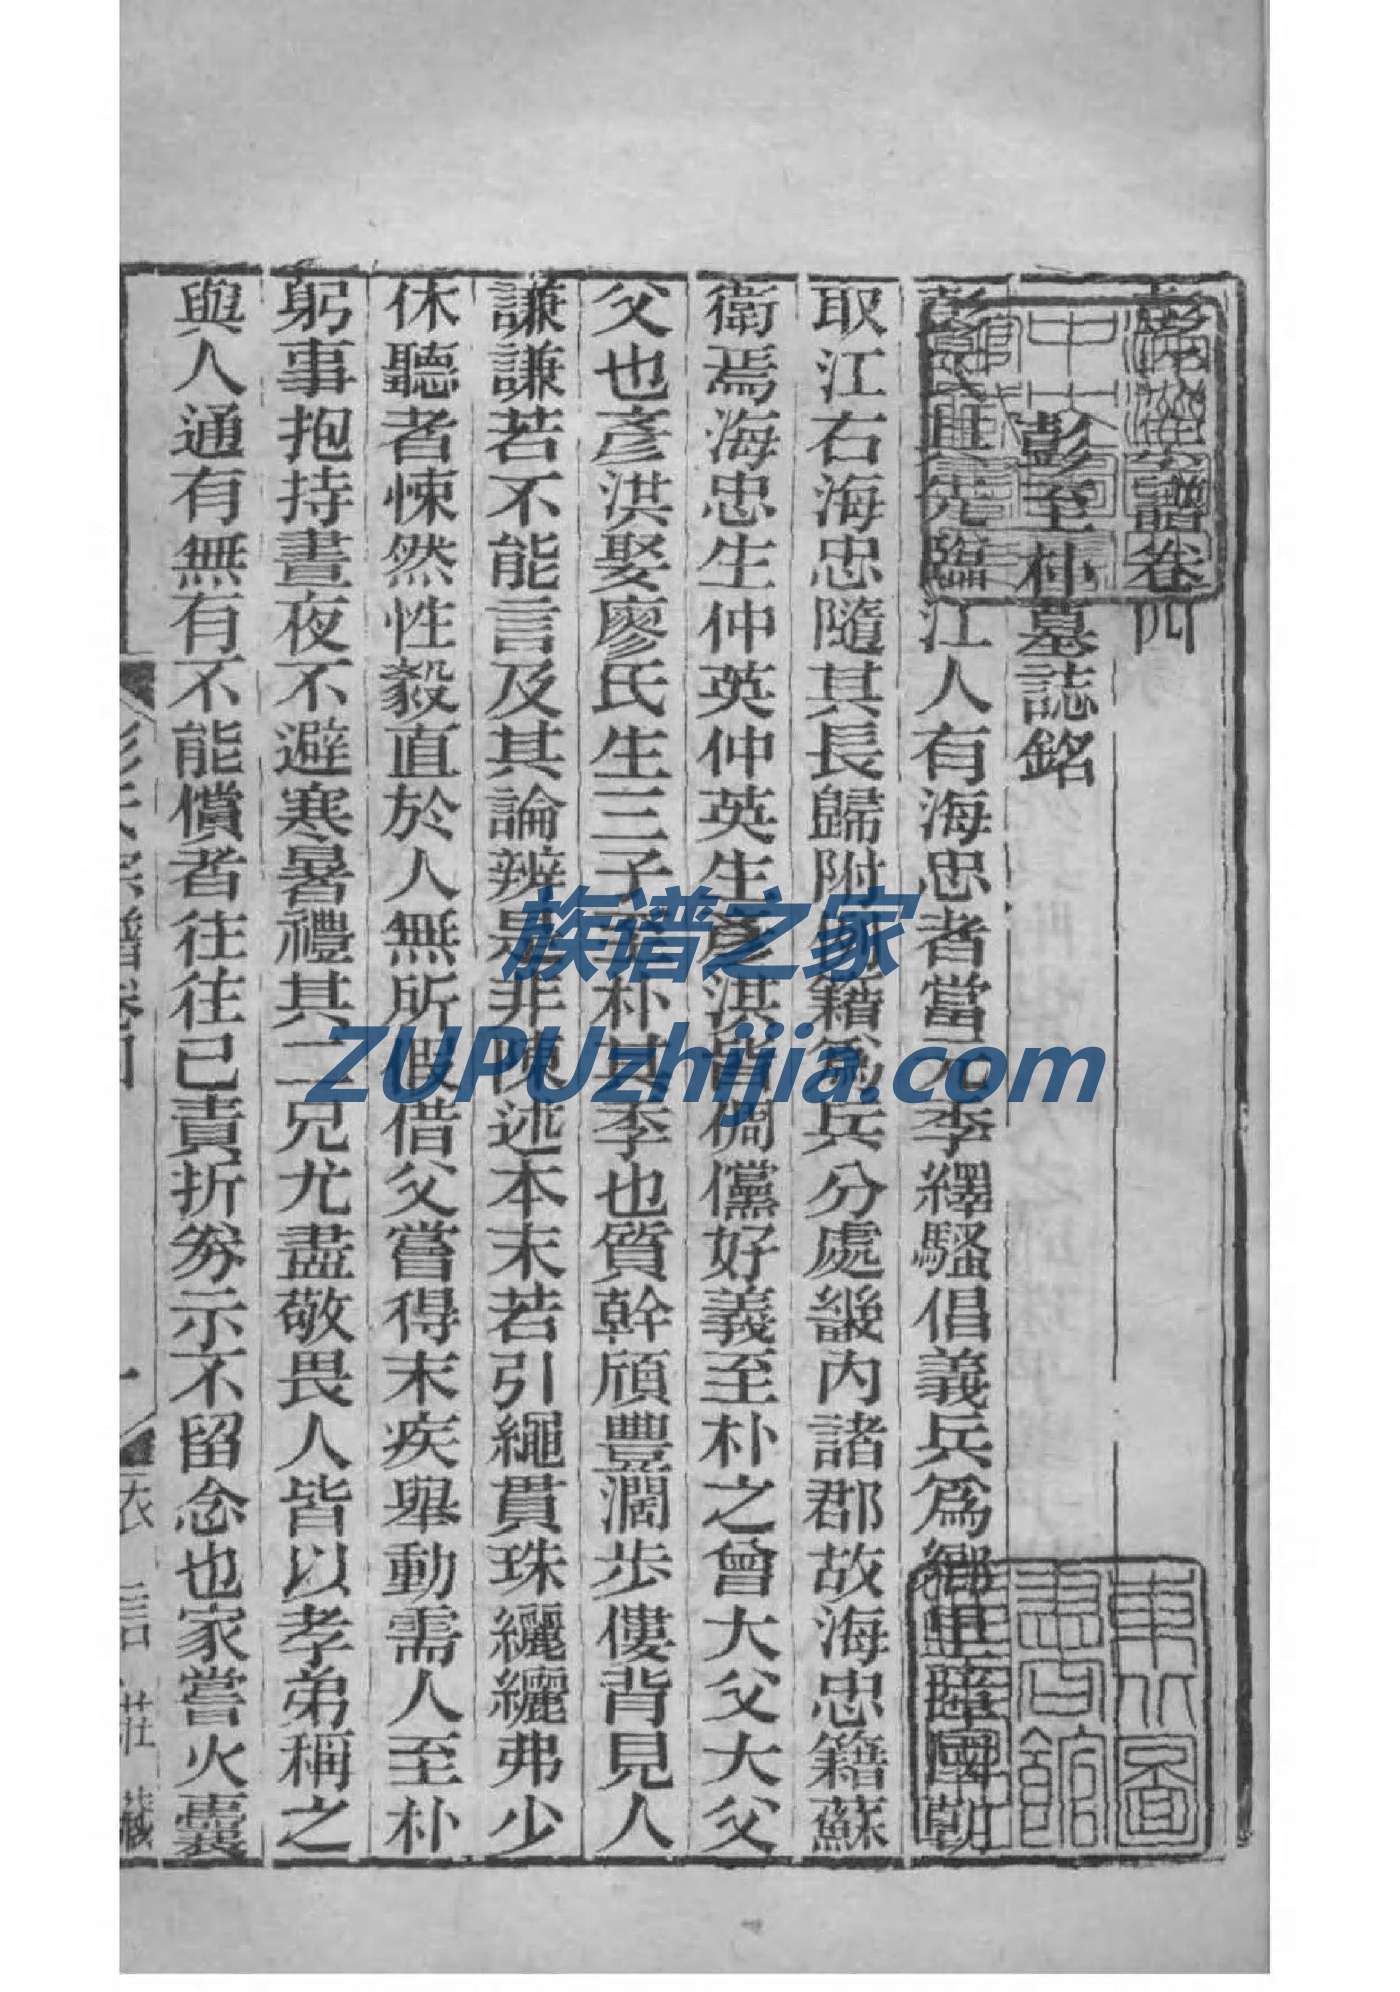 彭氏宗譜卷四
彭至朴墓誌銘
彭氏其先臨江人有海忠者當元季繹騷倡義兵爲鄉里障國朝
取江右海忠隨其長歸附例籍爲兵分處畿內諸郡故海忠籍蘇
衛焉海忠生仲英仲英生彥洪皆倜儻好義至朴之曾大父大父
父也彥洪娶廖氏生三子至朴其季也質幹頎豐濶步僂背見人
謙謙若不能言及其論辨是非陳述本末若引繩貫珠纚纚弗少
休聽者悚然性毅直於人無所假借父嘗得末疾舉動需人至朴
躬事抱持晝夜不避寒暑禮其二兄尤盡敬畏人皆以孝弟稱之
與人通有無有不能償者往往已責折券示不留念也家嘗火囊
彭氏宗譜卷四
一
衣言莊藏
族谱之家
ZUPUzhijia.com